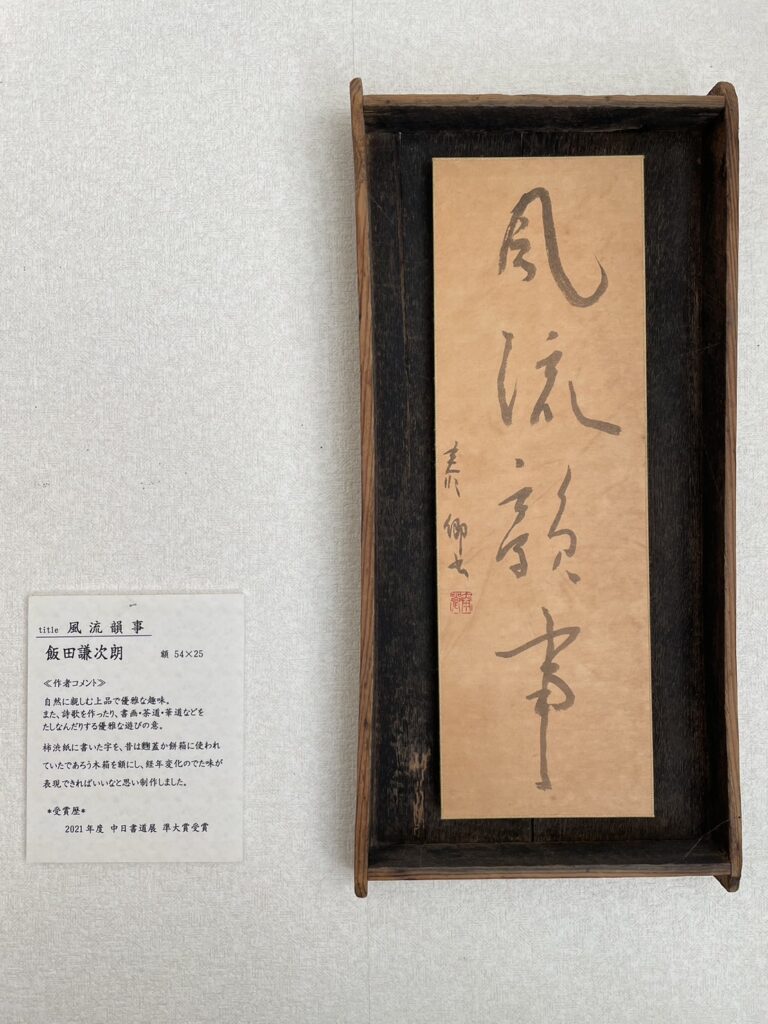 title 風流韻事
飯田謙次朗 額 54×25
≪作者コメント≫
自然に親しむ上品で優雅な趣味。
また、詩歌を作ったり、書画・茶道・華道などを
たしなんだりする優雅な遊びの意。
柿渋紙に書いた字を、昔は麴蓋か餅箱に使われ
ていたであろう木箱を額にし、経年変化のでた味が
表現できればいいなと思い制作しました。
*受賞歴*
2021年度 中日書道展 準大賞受賞
風流韻事